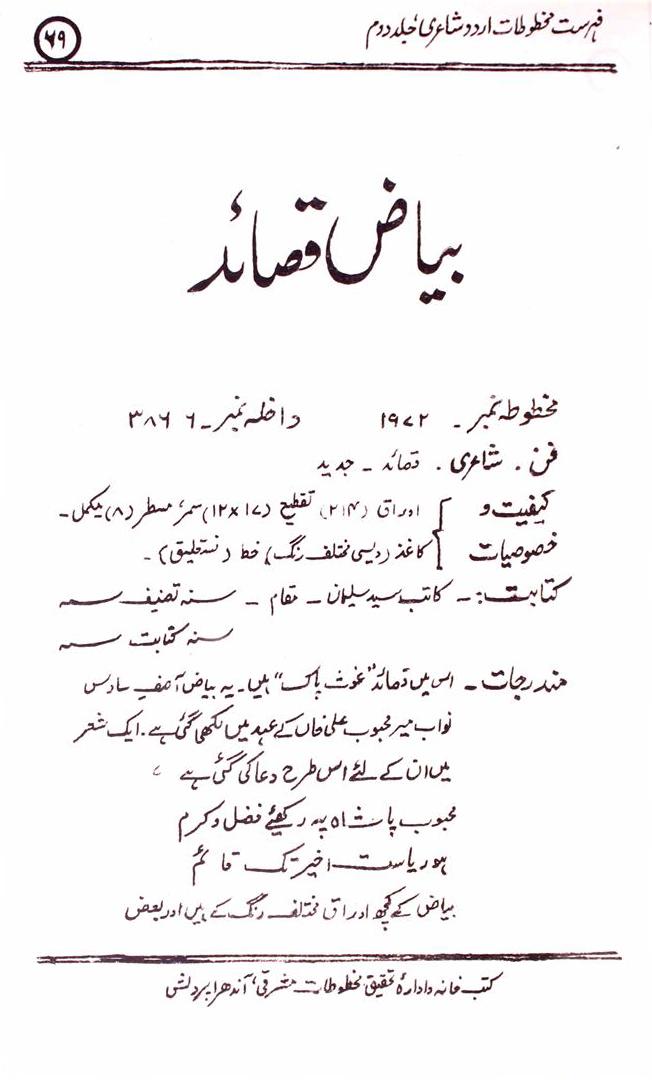 فہرست مخطوطات اردو شاعری، جلد دوم
۶۹
بیاض قصائد
مخطوطہ نمبر ۔ ۱۹۷۲ داخلہ نمبر ۔ ۳۸۶۶
فن . شاعری . قصائد ۔ جدید
کیفیت و اوراق (۲۱۴) تقطیع (۱۷×۱۲) سمر، مسطر (۸) مکمل ۔
خصوصیات کاغذ (دیسی مختلف رنگ) خط (نستعلیق) ۔
کتابت :۔ کاتب سید سلیمان ۔ مقام ۔ سنہ تصنیف سنہ
سنہ کتابت سنہ
مندرجات ۔ اس میں قصائد "غوث پاک" ہیں ۔ یہ بیاض آصف سادس
نواب میر محبوب علی خاں کے عہد میں لکھی گئی ہے . ایک شعر
میں ان کے لئے اس طرح دعا کی گئی ہے ے
محبوب پاشاہ پہ رکھیئے فضل و کرم
ہو ریاست اخیر تک قائم
بیاض کے کچھ اوراق مختلف رنگ کے ہیں اور بعض
کتب خانہ و ادارۂ تحقیق مخطوطات مشرقی، آندھرا پردیش